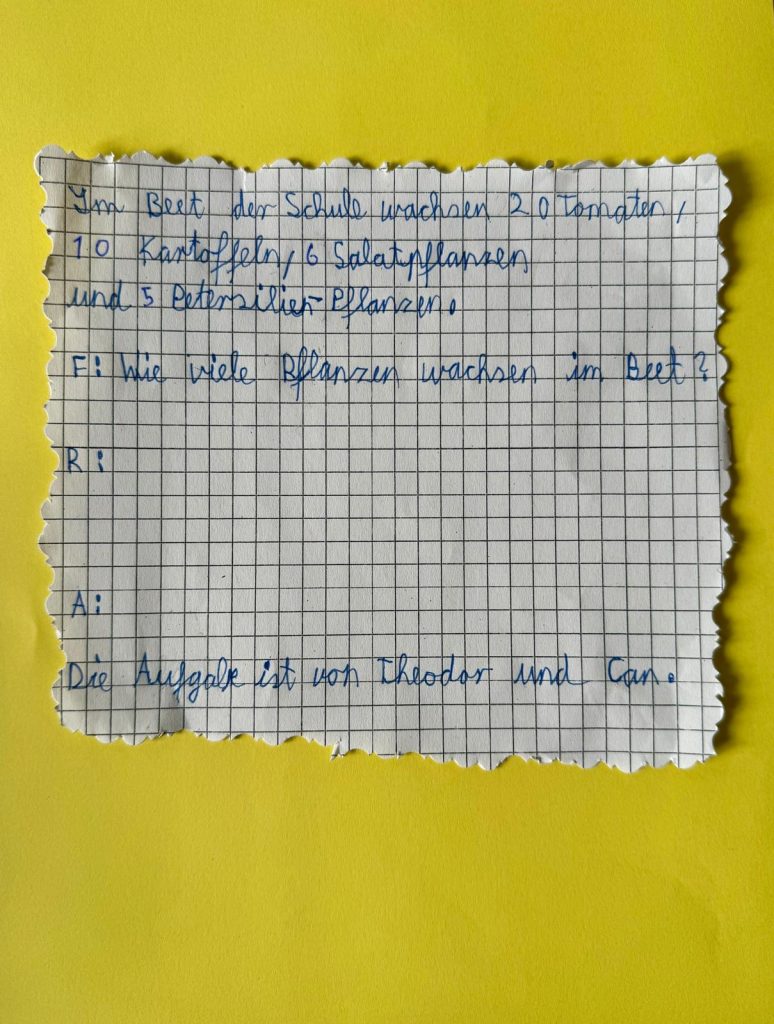 Im Beet der Schule wachsen 20 Tomaten,
10 Kartoffeln, 6 Salatpflanzen
und 5 Petersilien-Pflanzen.
F: Wie viele Pflanzen wachsen im Beet?
R:
A:
Die Aufgabe ist von Theodor und Can.